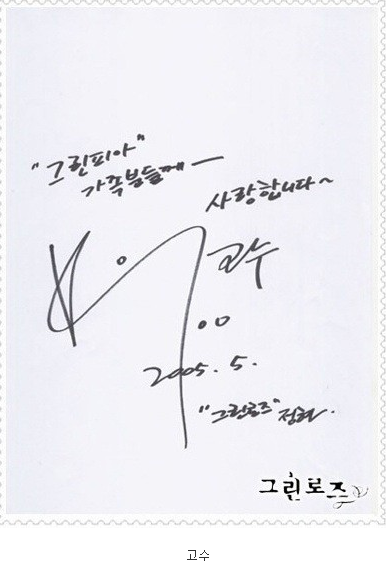 "그린피아"
가족분들께 —
사랑합니다~
고수
2005. 5.
"그린로즈" 정현.
그린로즈
고수